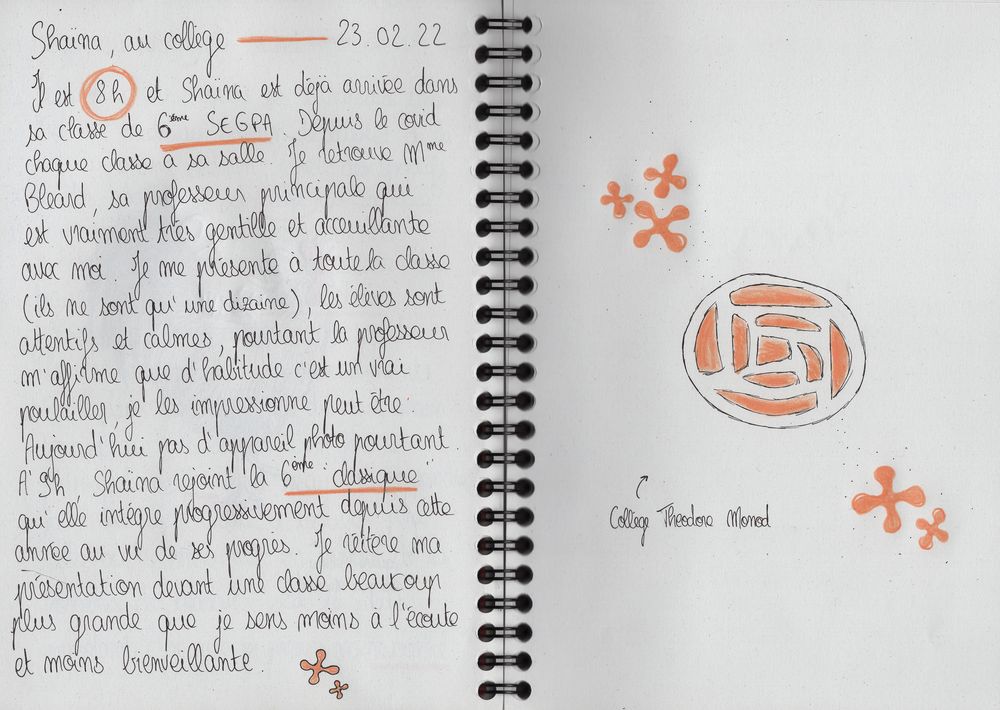 Shaïna, au collège 23.02.22
Il est 8h et Shaïna est déjà arrivée dans
sa classe de 6ème SEGPA. Depuis le covid
chaque classe a sa salle. Je retrouve Mme
Bleard, sa professeur principale qui
est vraiment très gentille et acceuillante
avec moi. Je me présente à toute la classe
(ils ne sont qu'une dizaine), les élèves sont
attentifs et calmes, pourtant la professeur
m'affirme que d'habitude c'est un vrai
poulailler, je les impressionne peut être.
Aujourd'hui pas d'appareil photo pourtant.
A 9h, Shaïna rejoint la 6ème "classique"
qu'elle intègre progressivement depuis cette
année au vu de ses progrès. Je réitère ma
présentation devant une classe beaucoup
plus grande que je sens moins à l'écoute
et moins bienveillante.
Collège Théodore Monod